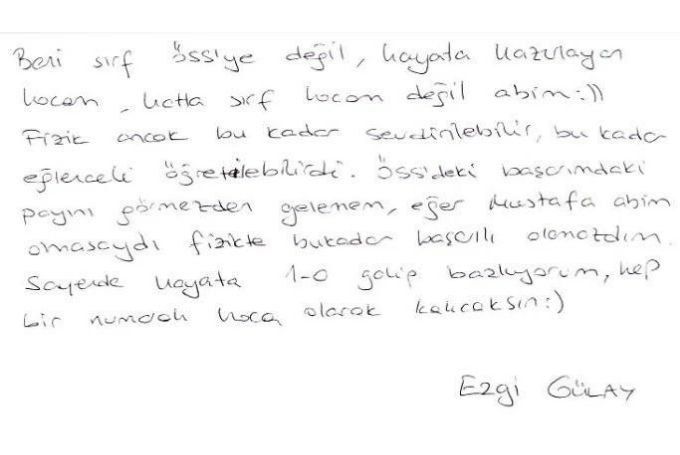 Beni sırf ÖSS'ye değil, hayata hazırlayan
hocam, hatta sırf hocam değil abim:))
Fizik ancak bu kadar sevdirilebilir, bu kadar
eğlenceli öğretilebilirdi. ÖSS'deki başarımdaki
payını görmezden gelemem, eğer Mustafa abim
omasaydı fizikte bukadar başarılı olamazdım.
Sayende hayata 1-0 galip başlıyorum, hep
bir numaralı hoca olarak kalıcaksın:)
Ezgi GÜLAY